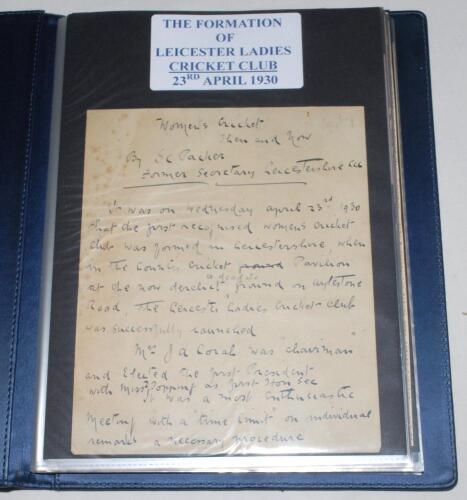 THE FORMATION
OF
LEICESTER LADIES
CRICKET CLUB
23RD APRIL 1930
Women's Cricket
Then and Now
By S C Packer
Former Secretary Leicestershire CCC
It was on Wednesday April 23rd 1930
that the first recognised women's cricket
club was formed in Leicestershire, when
in the County Cricket ground Pavilion
at the now derelict ground on Aylestone
Road, The Leicester "Ladies Cricket Club
was successfully launched
Mrs J A Corah was "chairman"
and Elected the first President
with Miss Topping as first Hon Sec
It was a most enthusiastic
meeting with a "time limit" on individual
remarks a necessary procedure